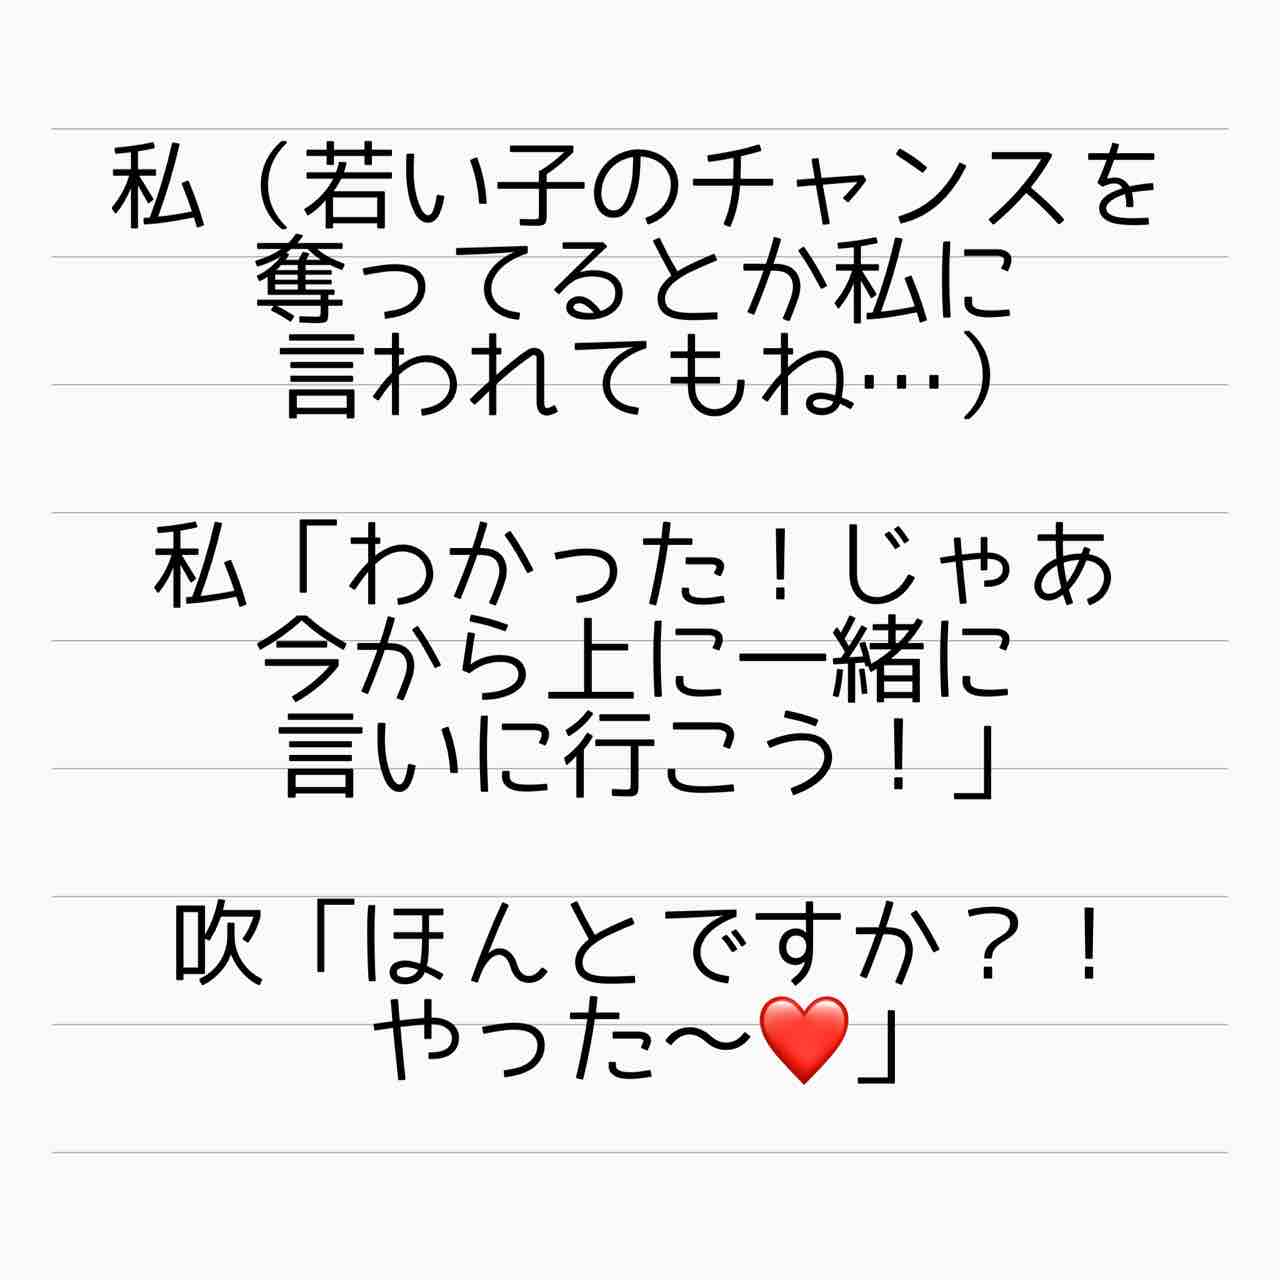 私（若い子のチャンスを
奪ってるとか私に
言われてもね…）
私「わかった！じゃあ
今から上に一緒に
言いに行こう！」
吹「ほんとですか？！
やった〜❤️」